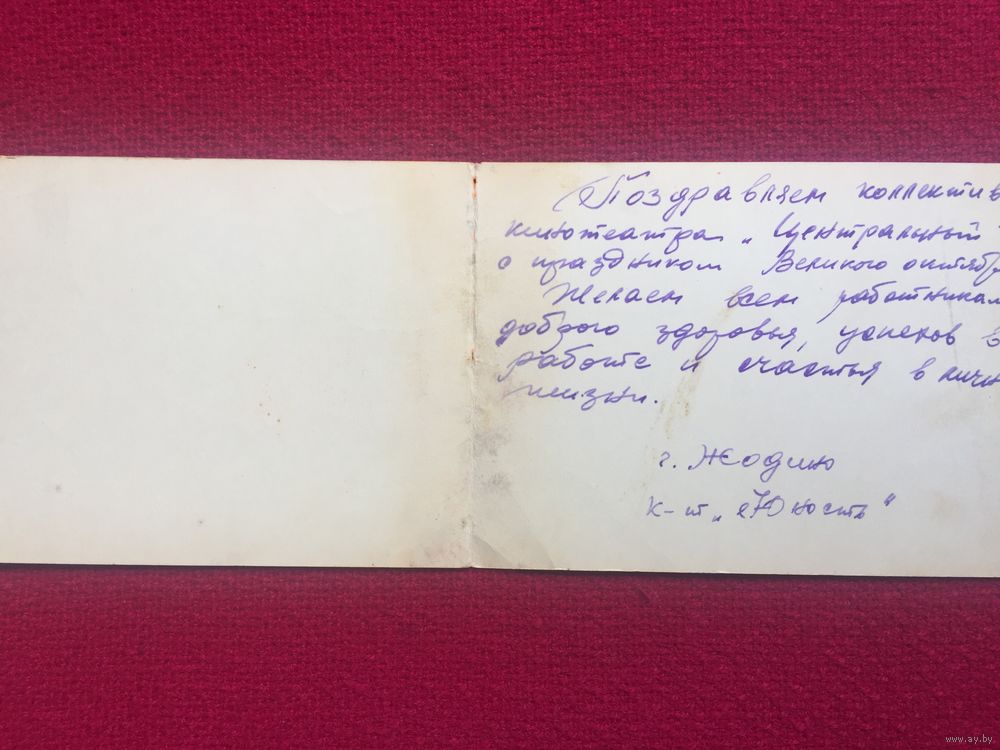 Поздравляем коллектив
кинотеатра „Центральный"
с праздником Великого октябр
Желаем всем работникам
доброго здоровья, успехов в
работе и счастья в личн
жизни.
г. Жодино
к-т „Юность"
www.ay.by